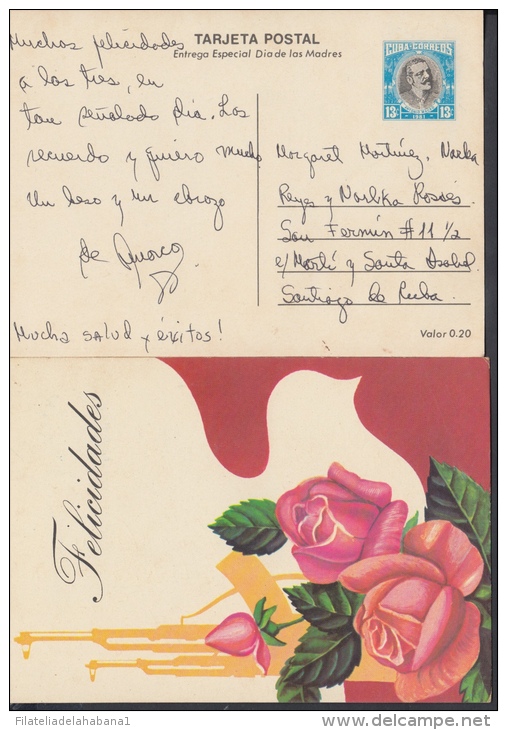 TARJETA POSTAL
Entrega Especial Dia de las Madres
CUBA·CORREOS
13c 1981 13c
Muchas felicidades
a las tres, en
tan señalado día. Los
recuerdo y quiero mucho
Un beso y un abrazo
de
Mucha salud y éxitos!
Margaret Martínez, Norka
Reyes y Norlika Rosés
San Fermín # 11 1/2
e/ Martí y Santa Isabel
Santiago de Cuba.
Valor 0.20
Felicidades
Filateliadelahabana1
www.delcampe.net